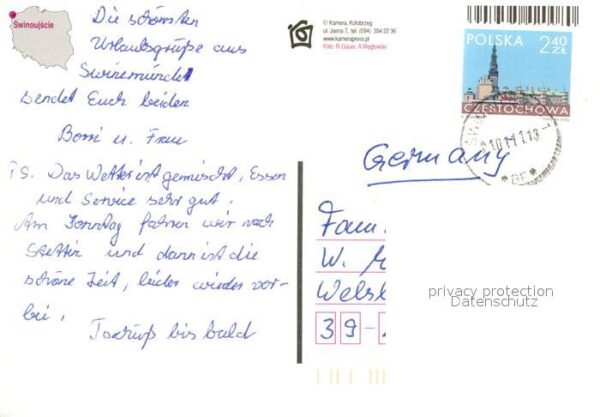 Świnoujście
Die schönsten
Urlaubsgrüße aus
Swinemünde
sendet Euch beiden
Bomi u. Frau
PS. Das Wetter ist gemischt, Essen
und Service sehr gut.
Am Sonntag fahren wir nach
Stettin und dann ist die
schöne Zeit, leider wieder vor-
bei.
bis bald
© Kamera, Kołobrzeg
ul. Jasna 7, tel. (094) 354 22 36
www.kamerapress.pl
Foto: R.Gauer, A.Węglowski
POLSKA 2,40
ZŁ
CZĘSTOCHOWA
Germany
Fam.
W.
39-
privacy protection
Datenschutz